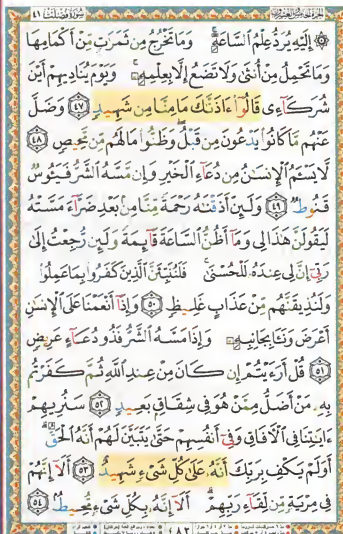 الجزء الخامس والعشرون سورة فصلت ٤١
۞ إِلَيْهِ يُرَدُّ عِلْمُ ٱلسَّاعَةِۚ وَمَا تَخْرُجُ مِن ثَمَرَٰتٍ مِّنْ أَكْمَامِهَا
وَمَا تَحْمِلُ مِنْ أُنثَىٰ وَلَا تَضَعُ إِلَّا بِعِلْمِهِۦۚ وَيَوْمَ يُنَادِيهِمْ أَيْنَ
شُرَكَآءِى قَالُوٓا۟ ءَاذَنَّٰكَ مَا مِنَّا مِن شَهِيدٍ ٤٧ وَضَلَّ
عَنْهُم مَّا كَانُوا۟ يَدْعُونَ مِن قَبْلُۖ وَظَنُّوا۟ مَا لَهُم مِّن مَّحِيصٍ ٤٨
لَّا يَسْـَٔمُ ٱلْإِنسَٰنُ مِن دُعَآءِ ٱلْخَيْرِ وَإِن مَّسَّهُ ٱلشَّرُّ فَيَـُٔوسٌ
قَنُوطٌ ٤٩ وَلَئِنْ أَذَقْنَٰهُ رَحْمَةً مِّنَّا مِنۢ بَعْدِ ضَرَّآءَ مَسَّتْهُ
لَيَقُولَنَّ هَٰذَا لِى وَمَآ أَظُنُّ ٱلسَّاعَةَ قَآئِمَةً وَلَئِن رُّجِعْتُ إِلَىٰ
رَبِّىٓ إِنَّ لِى عِندَهُۥ لَلْحُسْنَىٰۚ فَلَنُنَبِّئَنَّ ٱلَّذِينَ كَفَرُوا۟ بِمَا عَمِلُوا۟
وَلَنُذِيقَنَّهُم مِّنْ عَذَابٍ غَلِيظٍ ٥٠ وَإِذَآ أَنْعَمْنَا عَلَى ٱلْإِنسَٰنِ
أَعْرَضَ وَنَـَٔا بِجَانِبِهِۦ وَإِذَا مَسَّهُ ٱلشَّرُّ فَذُو دُعَآءٍ عَرِيضٍ
٥١ قُلْ أَرَءَيْتُمْ إِن كَانَ مِنْ عِندِ ٱللَّهِ ثُمَّ كَفَرْتُم
بِهِۦ مَنْ أَضَلُّ مِمَّنْ هُوَ فِى شِقَاقٍۭ بَعِيدٍ ٥٢ سَنُرِيهِمْ
ءَايَٰتِنَا فِى ٱلْـَٔافَاقِ وَفِىٓ أَنفُسِهِمْ حَتَّىٰ يَتَبَيَّنَ لَهُمْ أَنَّهُ ٱلْحَقُّۗ
أَوَلَمْ يَكْفِ بِرَبِّكَ أَنَّهُۥ عَلَىٰ كُلِّ شَىْءٍ شَهِيدٌ ٥٣ أَلَآ إِنَّهُمْ
فِى مِرْيَةٍ مِّن لِّقَآءِ رَبِّهِمْۗ أَلَآ إِنَّهُۥ بِكُلِّ شَىْءٍ مُّحِيطٌۢ ٥٤
٤٨٢